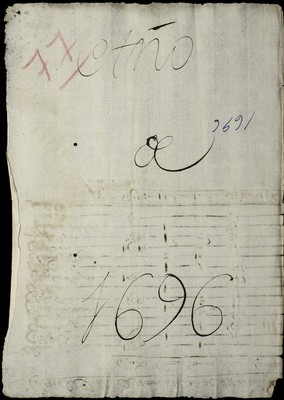 77
Año
de
1696
1696